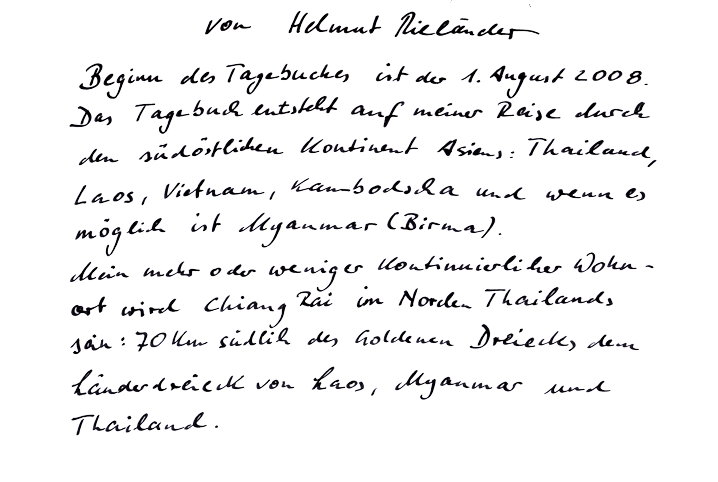 von Helmut Rieländer
Beginn des Tagebuches ist der 1. August 2008.
Das Tagebuch entsteht auf meiner Reise durch
den südöstlichen Kontinent Asiens: Thailand,
Laos, Vietnam, Kambodscha und wenn es
möglich ist Myanmar (Birma).
Mein mehr oder weniger kontinuierlicher Wohn-
ort wird Chiang Rai im Norden Thailands
sein: 70 Km südlich des Goldenen Dreiecks dem
Länderdreieck von Laos, Myanmar und
Thailand.